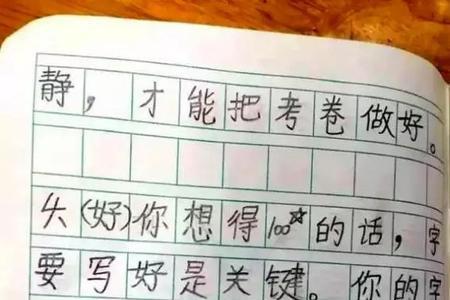 静，才能把考卷做好。
(好)你想得100☆的话，字
要写好是关键。你的字